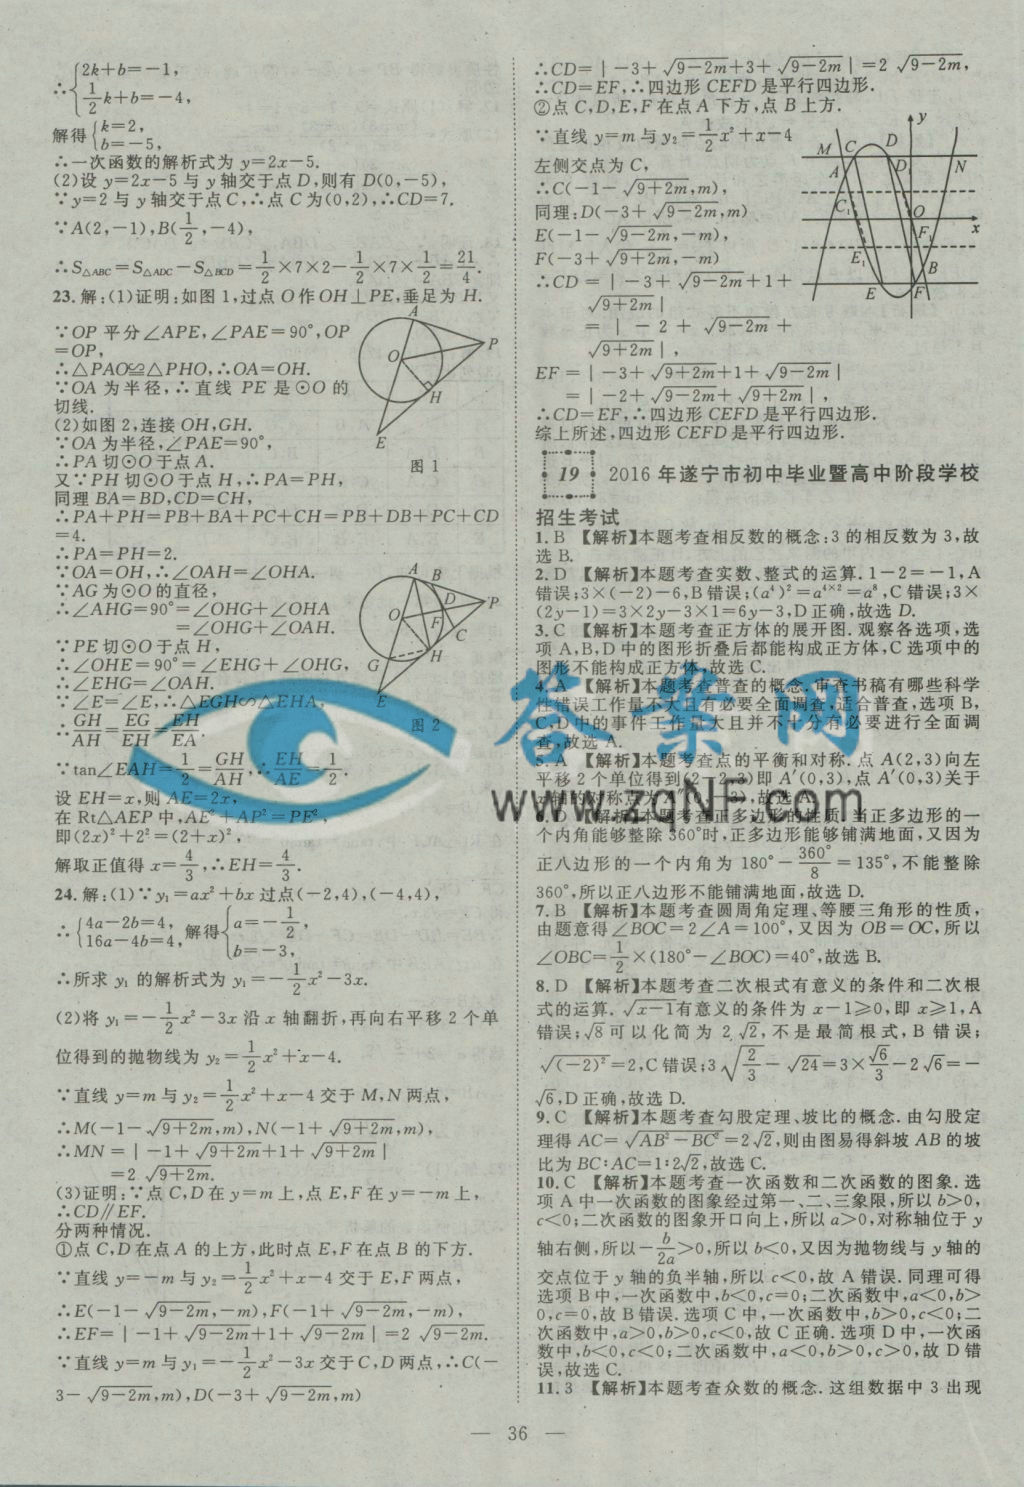 ∴{2k+b=-1,
1/2k+b=-4,
解得{k=2,
b=-5,
∴一次函数的解析式为 y=2x-5.
(2)设 y=2x-5 与 y 轴交于点 D,则有 D(0,-5),
∵y=2 与 y 轴交于点 C,∴点 C 为(0,2),∴CD=7.
∵A(2,-1),B(1/2,-4),
∴S△ABC=S△ADC-S△BCD=1/2×7×2-1/2×7×1/2=21/4.
23.解:(1)证明:如图 1,过点 O 作 OH⊥PE,垂足为 H.
∵OP 平分∠APE,∠PAE=90°,OP
=OP,
∴△PAO≌△PHO,∴OA=OH.
∵OA 为半径,∴直线 PE 是⊙O 的
切线.
(2)如图 2,连接 OH,GH.
∵OA 为半径,∠PAE=90°,
∴PA 切⊙O 于点 A.
又∵PH 切⊙O 于点 H,∴PA=PH,
同理 BA=BD,CD=CH,
∴PA+PH=PB+BA+PC+CH=PB+DB+PC+CD
=4.
∴PA=PH=2.
∵OA=OH,∴∠OAH=∠OHA.
∵AG 为⊙O 的直径,
∴∠AHG=90°=∠OHG+∠OHA
=∠OHG+∠OAH.
∵PE 切⊙O 于点 H,
∴∠OHE=90°=∠EHG+∠OHG,
∴∠EHG=∠OAH.
∵∠E=∠E,∴△EGH∽△EHA,
∴GH/AH=EG/EH=EH/EA.
∵tan∠EAH=1/2=GH/AH,∴EH/AE=1/2.
设 EH=x,则 AE=2x,
在 Rt△AEP 中,AE²+AP²=PE²,
即(2x)²+2²=(2+x)²,
解取正值得 x=4/3,∴EH=4/3.
A
O
P
H
E
图 1
A
B
D
P
O
F
C
G
H
E
图 2
24.解:(1)∵y₁=ax²+bx 过点(-2,4),(-4,4),
∴{4a-2b=4,
16a-4b=4,解得{a=-1/2,
b=-3,
∴所求 y₁ 的解析式为 y₁=-1/2x²-3x.
(2)将 y₁=-1/2x²-3x 沿 x 轴翻折,再向右平移 2 个单
位得到的抛物线为 y₂=1/2x²+x-4.
∵直线 y=m 与 y₂=1/2x²+x-4 交于 M,N 两点,
∴M(-1-√(9+2m),m),N(-1+√(9+2m),m),
∴MN=|-1+√(9+2m)+1+√(9+2m)|
=2√(9+2m).
(3)证明:∵点 C,D 在 y=m 上,点 E,F 在 y=-m 上,
∴CD∥EF.
分两种情况.
①点 C,D 在点 A 的上方,此时点 E,F 在点 B 的下方.
∵直线 y=-m 与 y₂=1/2x²+x-4 交于 E,F 两点,
∴E(-1-√(9-2m),-m),F(-1+√(9-2m),-m),
∴EF=|-1+√(9-2m)+1+√(9-2m)|=2√(9-2m).
∵直线 y=m 与 y₁=-1/2x²-3x 交于 C,D 两点,∴C(-
3-√(9-2m),m),D(-3+√(9-2m),m)
∴CD=|-3+√(9-2m)+3+√(9-2m)|=2√(9-2m),
∴CD=EF,∴四边形 CEFD 是平行四边形.
②点 C,D,E,F 在点 A 下方,点 B 上方.
∵直线 y=m 与 y₂=1/2x²+x-4
左侧交点为 C,
∴C(-1-√(9+2m),m),
同理:D(-3+√(9-2m),m)
E(-1-√(9-2m),-m),
F(-3+√(9+2m),-m)
∴CD=|-3+√(9-2m)+1+
√(9+2m)|
=|-2+√(9-2m)+
√(9+2m)|,
EF=|-3+√(9+2m)+1+√(9-2m)|
=|-2+√(9-2m)+√(9+2m)|,
∴CD=EF,∴四边形 CEFD 是平行四边形.
综上所述,四边形 CEFD 是平行四边形.
y
M
C
D
N
A
D₁
C₁
O
x
F₁
E₁
B
E
F
19 2016 年遂宁市初中毕业暨高中阶段学校
招生考试
1.B 【解析】本题考查相反数的概念:3 的相反数为 3,故
选 B.
2.D 【解析】本题考查实数、整式的运算.1-2=-1,A
错误;3×(-2)-6,B 错误;(a⁴)²=a⁴ˣ²=a⁸,C 错误;3×
(2y-1)=3×2y-3×1=6y-3,D 正确,故选 D.
3.C 【解析】本题考查正方体的展开图.观察各选项,选
项 A,B,D 中的图形折叠后都能构成正方体,C 选项中的
图形不能构成正方体,故选 C.
4.A 【解析】本题考查普查的概念.审查书稿有哪些科学
性错误工作量不大且有必要全面调查,适合普查,选项 B,
C,D 中的事件工作量大且并不十分有必要进行全面调
查,故选 A.
5.A 【解析】本题考查点的平衡和对称.点 A(2,3)向左
平移 2 个单位得到(2-2,3)即 A′(0,3),点 A′(0,3)关于
x 轴的对称点为 A″(0,-3),故选 A.
6.D 【解析】本题考查正多边形的性质.当正多边形的一
个内角能够整除 360°时,正多边形能够铺满地面,又因为
正八边形的一个内角为 180°-360°/8=135°,不能整除
360°,所以正八边形不能铺满地面,故选 D.
7.B 【解析】本题考查圆周角定理、等腰三角形的性质,
由题意得∠BOC=2∠A=100°,又因为 OB=OC,所以
∠OBC=1/2×(180°-∠BOC)=40°,故选 B.
8.D 【解析】本题考查二次根式有意义的条件和二次根
式的运算.√(x-1)有意义的条件为 x-1≥0,即 x≥1,A
错误;√8可以化简为 2√2,不是最简根式,B 错误;
√(-2)²=2,C 错误;3√(2/3)-√24=3×√6/3-2√6=-
√6,D 正确,故选 D.
9.C 【解析】本题考查勾股定理、坡比的概念.由勾股定
理得 AC=√(AB²-BC²)=2√2,则由图易得斜坡 AB 的坡
比为 BC∶AC=1∶2√2,故选 C.
10.C 【解析】本题考查一次函数和二次函数的图象.选
项 A 中一次函数的图象经过第一、二、三象限,所以 b>0,
c<0;二次函数的图象开口向上,所以 a>0,对称轴位于 y
轴右侧,所以-b/2a>0,所以 b<0,又因为抛物线与 y 轴的
交点位于 y 轴的负半轴,所以 c<0,故 A 错误.同理可得
选项 B 中,一次函数中,b<0,c=0;二次函数中,a<0,b>
0,c=0,故 B 错误.选项 C 中,一次函数中,b>0,c<0;二
次函数中,a>0,b>0,c<0,故 C 正确.选项 D 中,一次函
数中,b<0,c<0;二次函数中,a<0,b>0,c>0,故 D 错
误,故选 C.
11.3 【解析】本题考查众数的概念.这组数据中 3 出现
— 36 —
答案网
www.zqnf.com